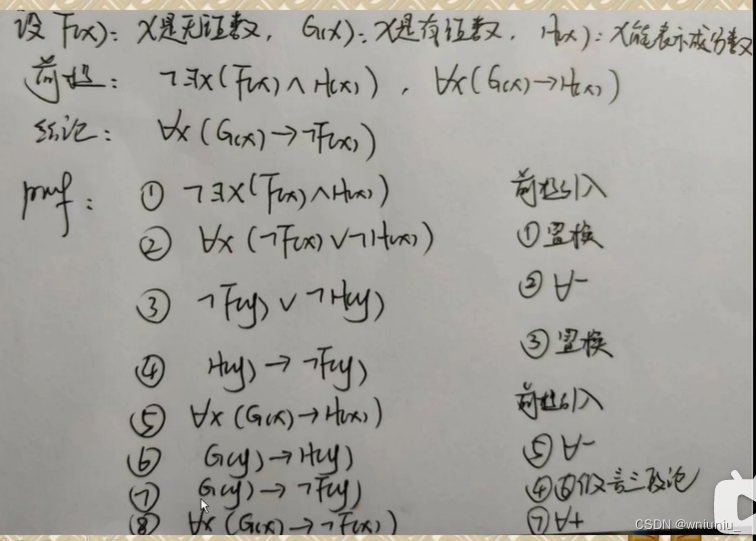 设 F(x): x是无理数, G(x): x是有理数, H(x): x能表示成分数
前提: ¬∃x(F(x)∧H(x)), ∀x(G(x)→H(x))
结论: ∀x(G(x)→¬F(x))
pmf: ① ¬∃x(F(x)∧H(x)) 前提引入
② ∀x(¬F(x)∨¬H(x)) ①置换
③ ¬F(y)∨¬H(y) ②∀-
④ H(y)→¬F(y) ③置换
⑤ ∀x(G(x)→H(x)) 前提引入
⑥ G(y)→H(y) ⑤∀-
⑦ G(y)→¬F(y) ④⑥假言三段论
⑧ ∀x(G(x)→¬F(x)) ⑦∀+
CSDN @wniuniu_